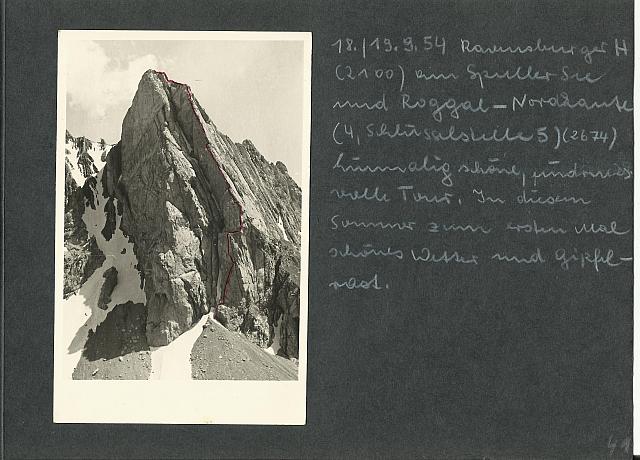 18./19.9.54 Ravensburger H
(2100) am Spuller See
und Roggal-Nordkante
(4, Schlüsselstelle 5) (2674)
himmlig schöne, eindrucks
volle Tour. In diesem
Sommer zum ersten Mal
schönes Wetter und Gipfel-
rast.
49